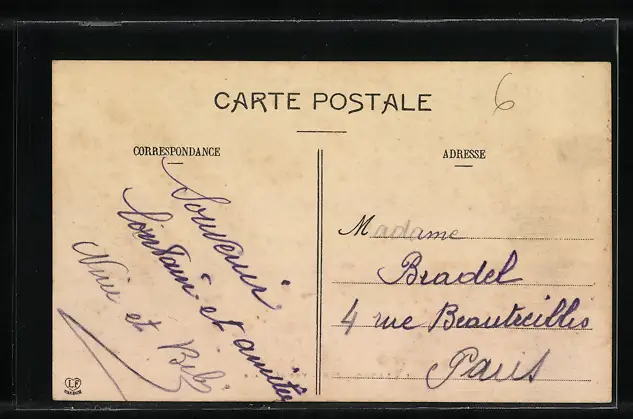 CARTE POSTALE
6
CORRESPONDANCE
Souvenir
lointain et amitiés
et Bébé
ADRESSE
Madame
Bradel
4 rue Beautreillis
Paris
LF